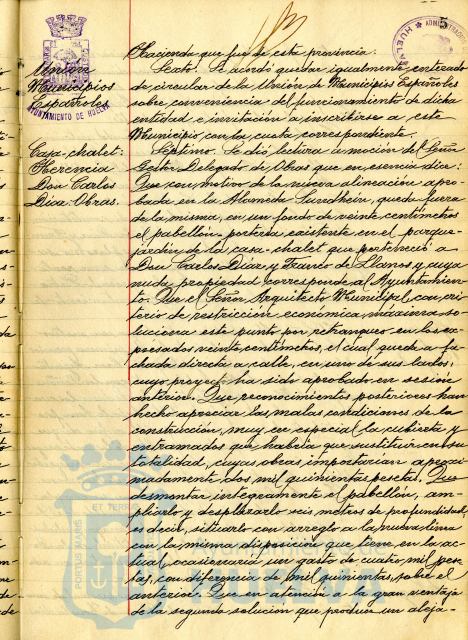 5
Hacienda que fue de esta provincia.
Unión
Municipios
Españoles
AYUNTAMIENTO DE HUELVA
ADMINISTRACION
HUELVA
Sexto. Se acordó quedar igualmente enterado
de circular de la Unión de Municipios Españoles
sobre conveniencia del funcionamiento de dicha
entidad e invitación a inscribirse a este
Municipio con la cuota correspondiente.
Casa-chalet:
Herencia
Don Carlos
Díaz. Obras.
Séptimo. Se dió lectura a moción del Señor
Gestor Delegado de Obras que en esencia dice:
Que con motivo de la nueva alineación apro-
bada en la Alameda Sundheim, queda fuera
de la misma, en un fondo de veinte centímetros
el pabellón-portería existente en el parque-
jardín de la casa-chalet que perteneció a
Don Carlos Díaz y Franco de Llanos y cuya
nuda propiedad corresponde al Ayuntamien-
to. Que el Señor Arquitecto Municipal con cri-
terio de restricción económica máxima so-
luciona este punto por retranqueo en los ex-
presados veinte centímetros, el cual quede a fa-
chada directa a calle, en uno de sus lados;
cuyo proyecto ha sido aprobado en sesión
anterior. Que reconocimientos posteriores han
hecho apreciar las malas condiciones de la
construcción, muy en especial la cubierta y
entramados que habría que sustituir en su
totalidad, cuyas obras importarían aproxi-
madamente dos mil quinientas pesetas. Que
desmontar íntegramente el pabellón, am-
pliarlo y desplazarlo seis metros de profundidad,
es decir, situarlo con arreglo a la nueva línea
con la misma disposición que tiene en la ac-
tual, ocasionaría un gasto de cuatro mil pese-
tas, con diferencia de mil quinientas, sobre el
anterior. Que en atención a la gran ventaja
de la segunda solución que produce un aleja-
ET TERRÆ
PORTUS MARIS
Ayuntamiento de
HUELVA